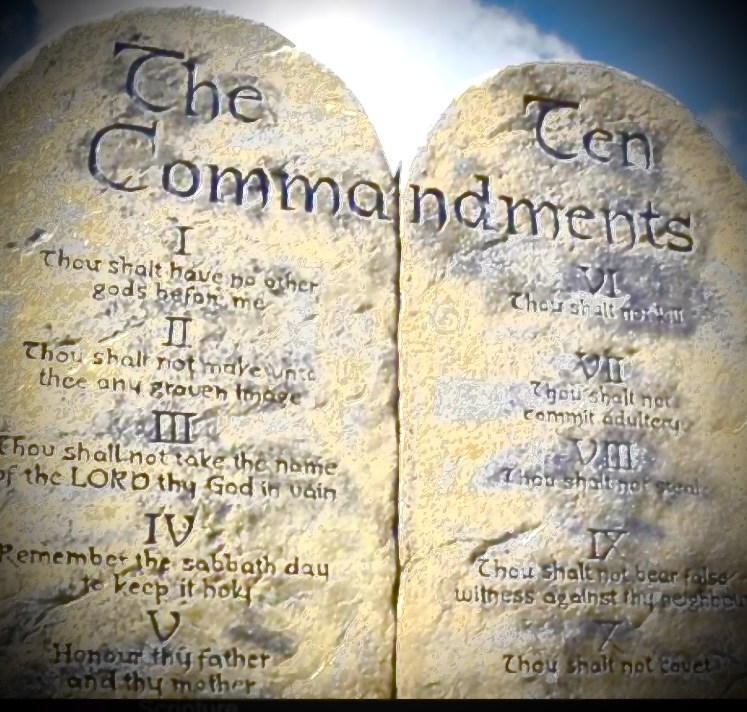 The
Commandments
I
Thou shalt have no other
gods before me
II
Thou shalt not make unto
thee any graven image
III
Thou shall not take the name
of the LORD thy God in vain
IV
Remember the sabbath day
to keep it holy
V
Honour thy father
and thy mother
Ten
VI
Thou shalt not
VII
Thou shalt not
commit adultery
VIII
Thou shalt not steal
IX
Thou shalt not bear false
witness against thy neighbour
X
Thou shalt not covet
Scripture